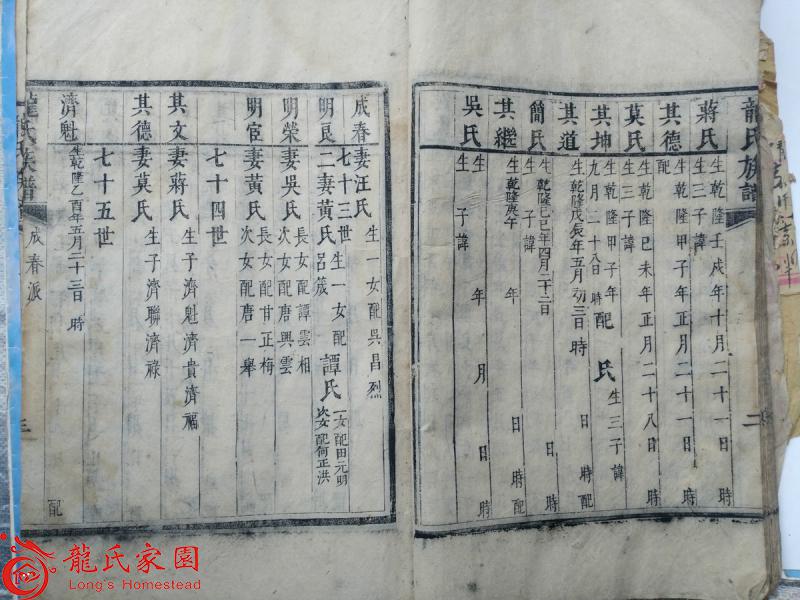 龍氏族譜
二
蔣氏 生乾隆壬戌年十月二十一日 時
生三子諱
其德 生乾隆甲子年正月二十一日 時
莫氏 生乾隆己未年正月二十八日 時
生三子諱
其坤 生乾隆甲子年
九月二十八日 時配 氏 生三子諱
其道 生乾隆戊辰年五月初三日時 配
簡氏 生乾隆己巳年四月二十二日 時
生 子諱
其繼 生乾隆庚午 年 日 時配
吳氏 生 年 月 日 時
生 子諱
成春 妻汪氏 生一女配吳昌烈
七十三世
明良 二妻黃氏 生一女配呂箴 譚氏 一女配田元明 次女配何正洪
明榮 妻吳氏 長女配譚雲相 次女配唐興雲
明宦 妻黃氏 長女配甘正梅 次女配唐一舉
七十四世
其文 妻蔣氏 生子濟魁濟貴濟福
其德 妻莫氏 生子濟聯濟祿
七十五世
濟魁 生乾隆乙酉年五月二十三日 時 配
龍氏族譜
成春派
三
龍氏家園
Long's Homestead